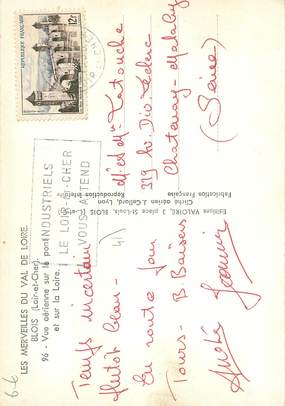 LES MERVEILLES DU VAL DE LOIRE
BLOIS (Loir-et-Cher).
96 - Vue aérienne sur le pont
et sur la Loire.
Temps incertain
plutôt beau -
En route pour
Tours - B. Baisers
André
Editions VALOIRE, 3 place St-Louis, BLOIS (L.-et-C.)
Cliché adrian J.Callard, Lyon
Fabrication Française Reproduction
INDUSTRIELS
LE LOIR-ET-CHER
VOUS ATTEND
REPUBLIQUE FRANÇAISE
12F
M. et Mme Latouche
319 Av. Div. Leclerc
Chatenay-Malabry
(Seine)
41
6-6